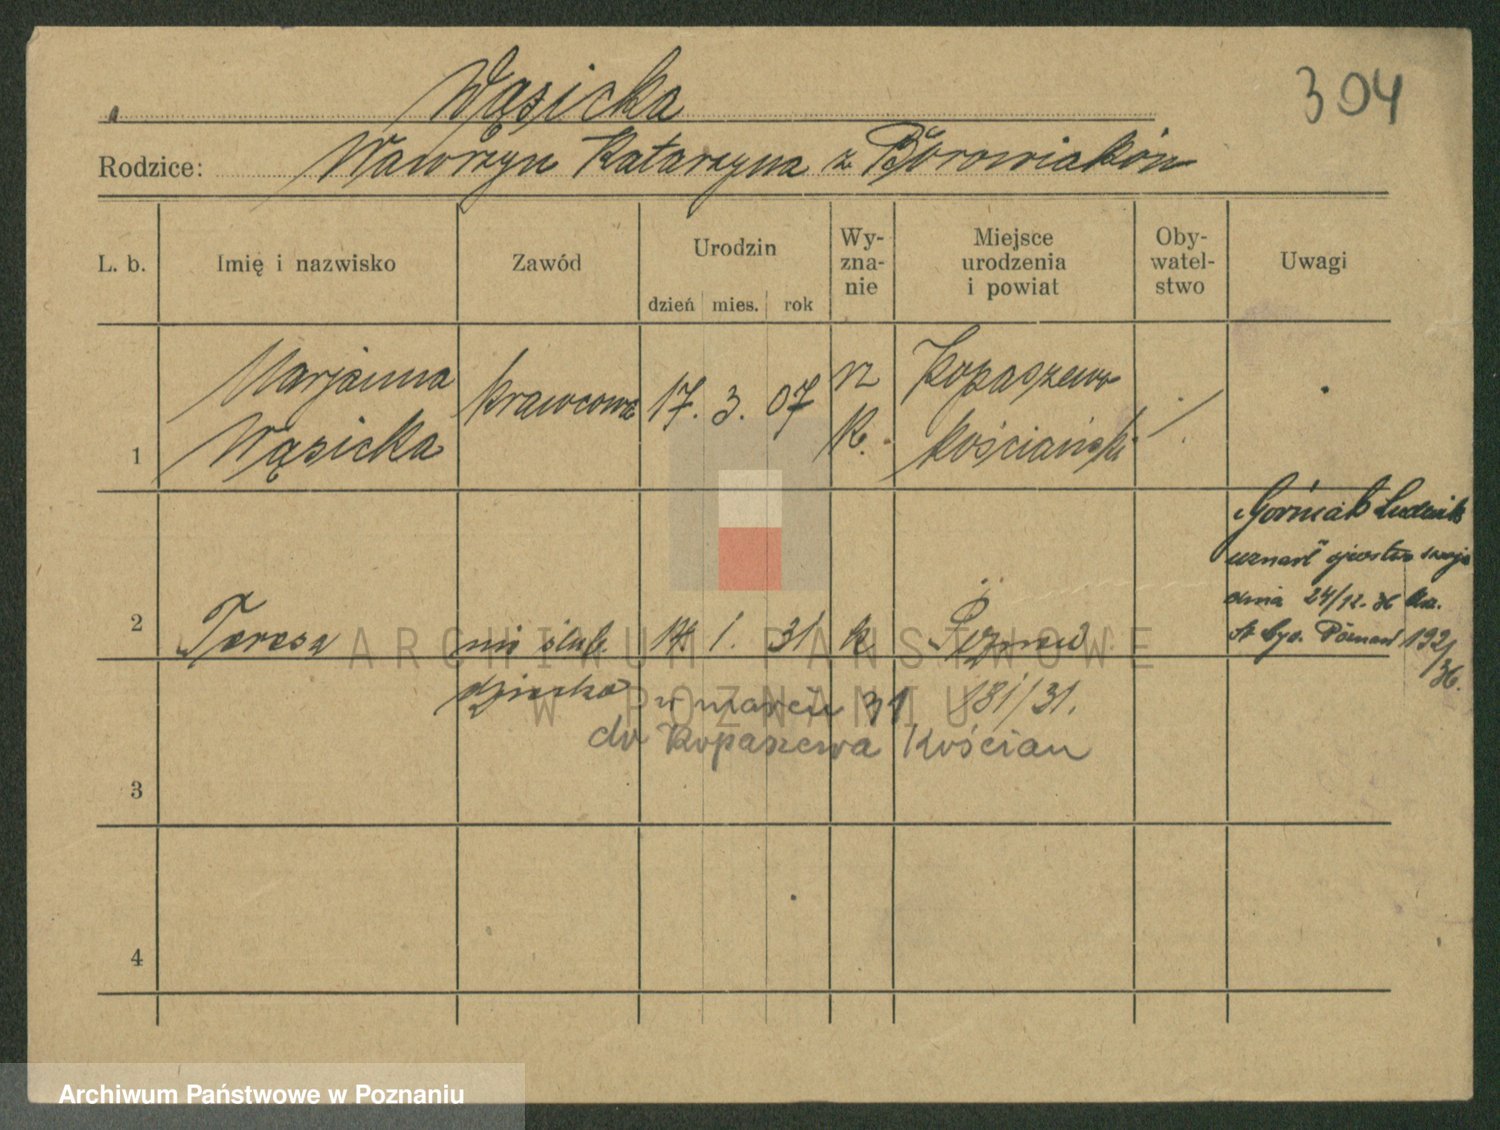 Wąsicka
304
Rodzice: Wawrzyn Katarzyna z Borowiaków
L. b.
Imię i nazwisko
Zawód
Urodzin
dzień mies. rok
Wy-
zna-
nie
Miejsce
urodzenia
i powiat
Oby-
watel-
stwo
Uwagi
1
Marjanna
Wąsicka
krawcowa
17. 3. 07
rz
k.
Kopaszewo
kościański
2
Teresa
nie ślub.
dziecko
14 1. 31
k
Poznań
181/31.
Górniak Ludwik
uznał ojcostwo swoje
dnia 24/12. 36
St Cyw. Poznań 192/36.
w marcu 31
do Kopaszewa Kościan
3
4
ARCHIWUM PAŃSTWOWE
W POZNANIU
Archiwum Państwowe w Poznaniu